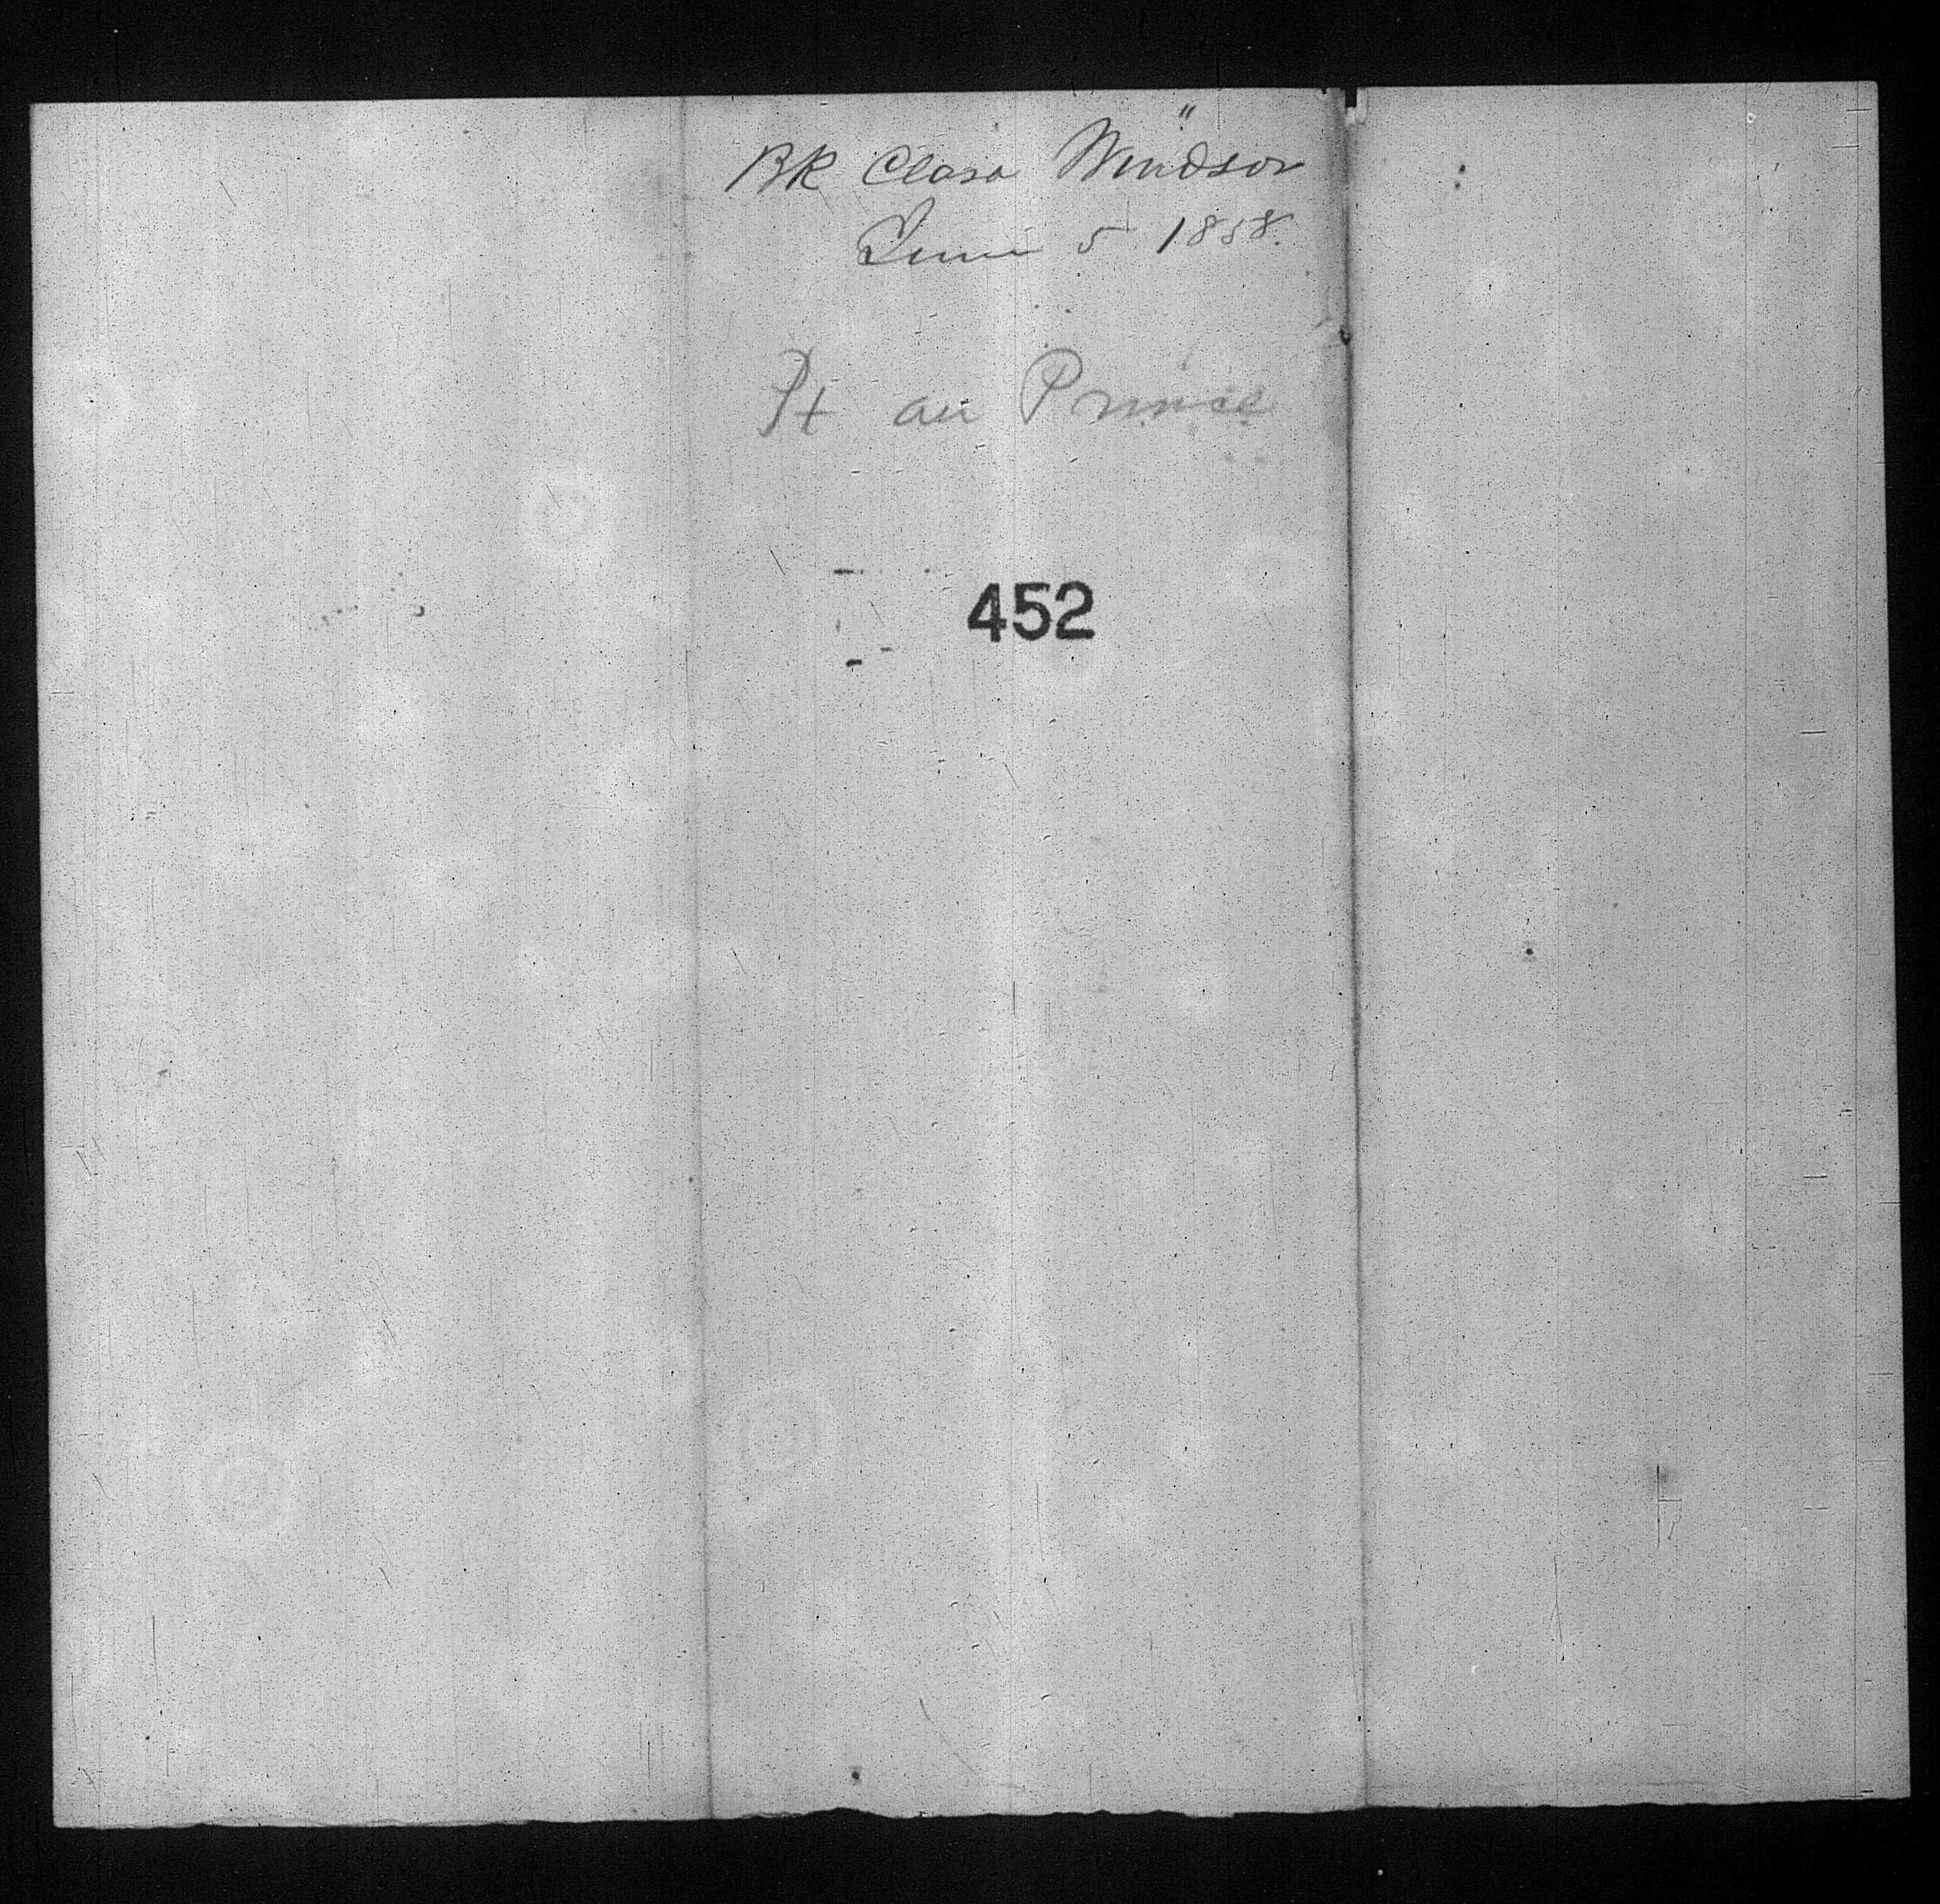 Bk Clara Windsor"
June 5 1858.
Pt au Prince
452